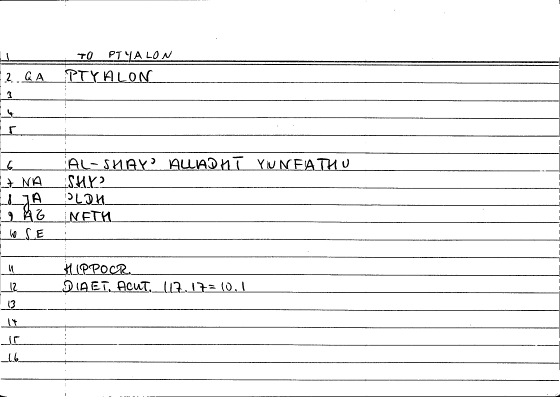 1 TO PTYALON
2 GA PTYALON
3
4
5
6 AL-SHAYʾ ALLADHĪ YUNFATHU
7 NA SHYʾ
8 JA ʾLDH
9 AG NFTH
10 SE
11 HIPPOCR.
12 DIAET. ACUT. 117.17=10.1
13
14
15
16